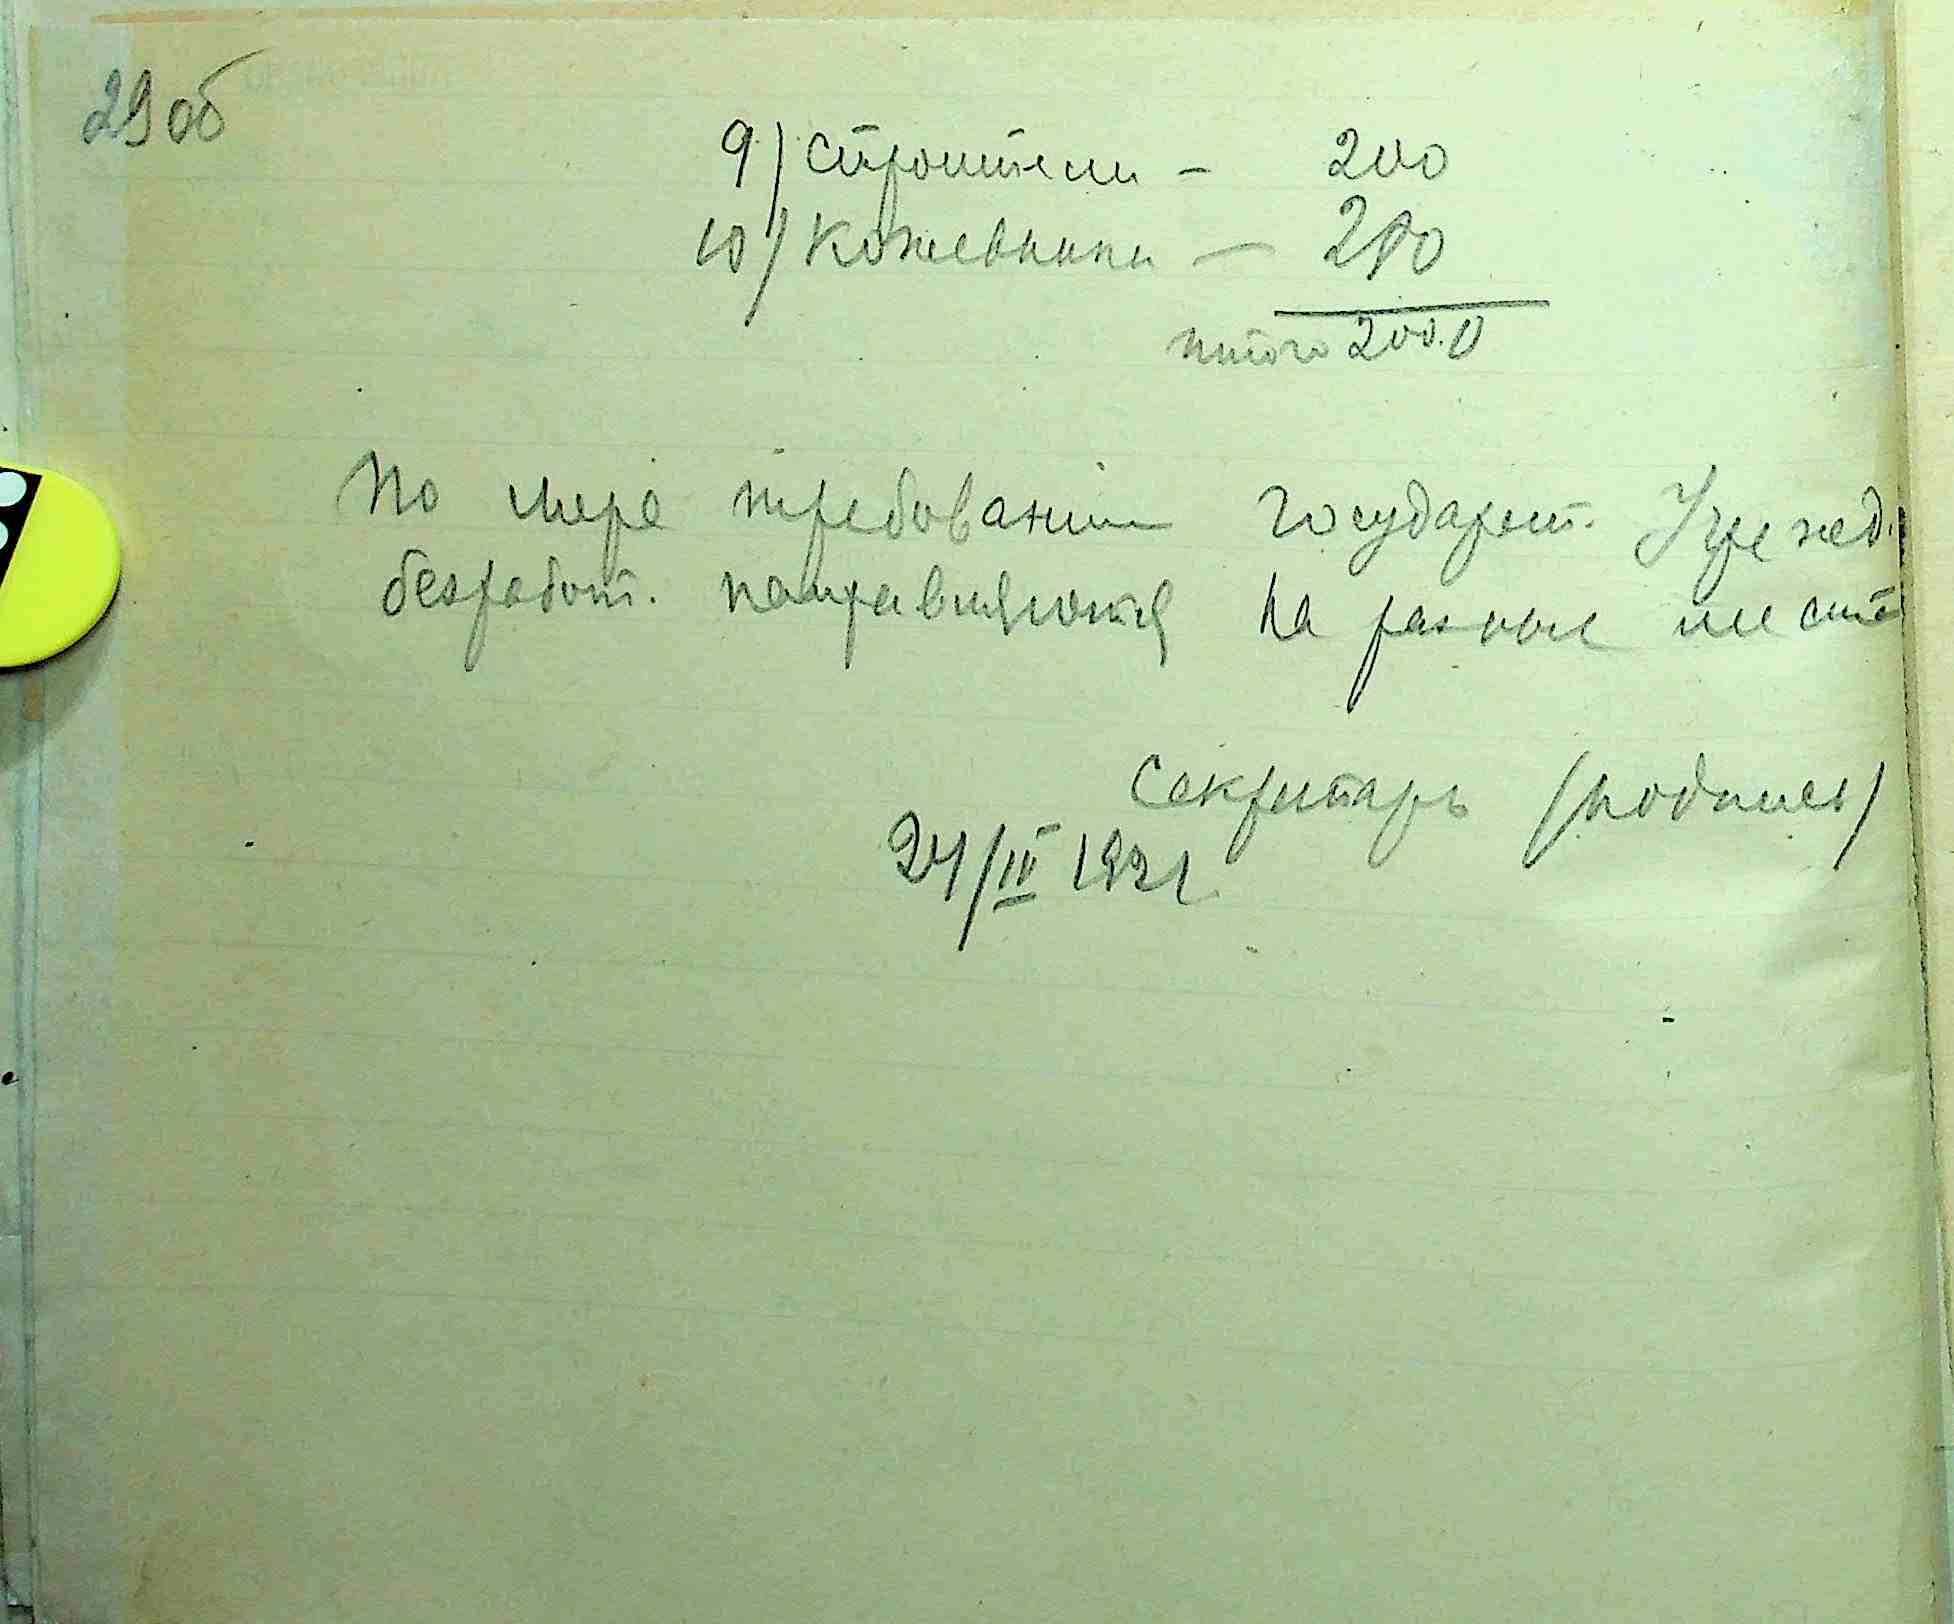 29 об
9) строители - 200
10) Кожевники — 200
итого 2000
По мере требования государст. Учрежд.
безработ. направляются на разные места
Секретарь (подпись)
24/III 1921